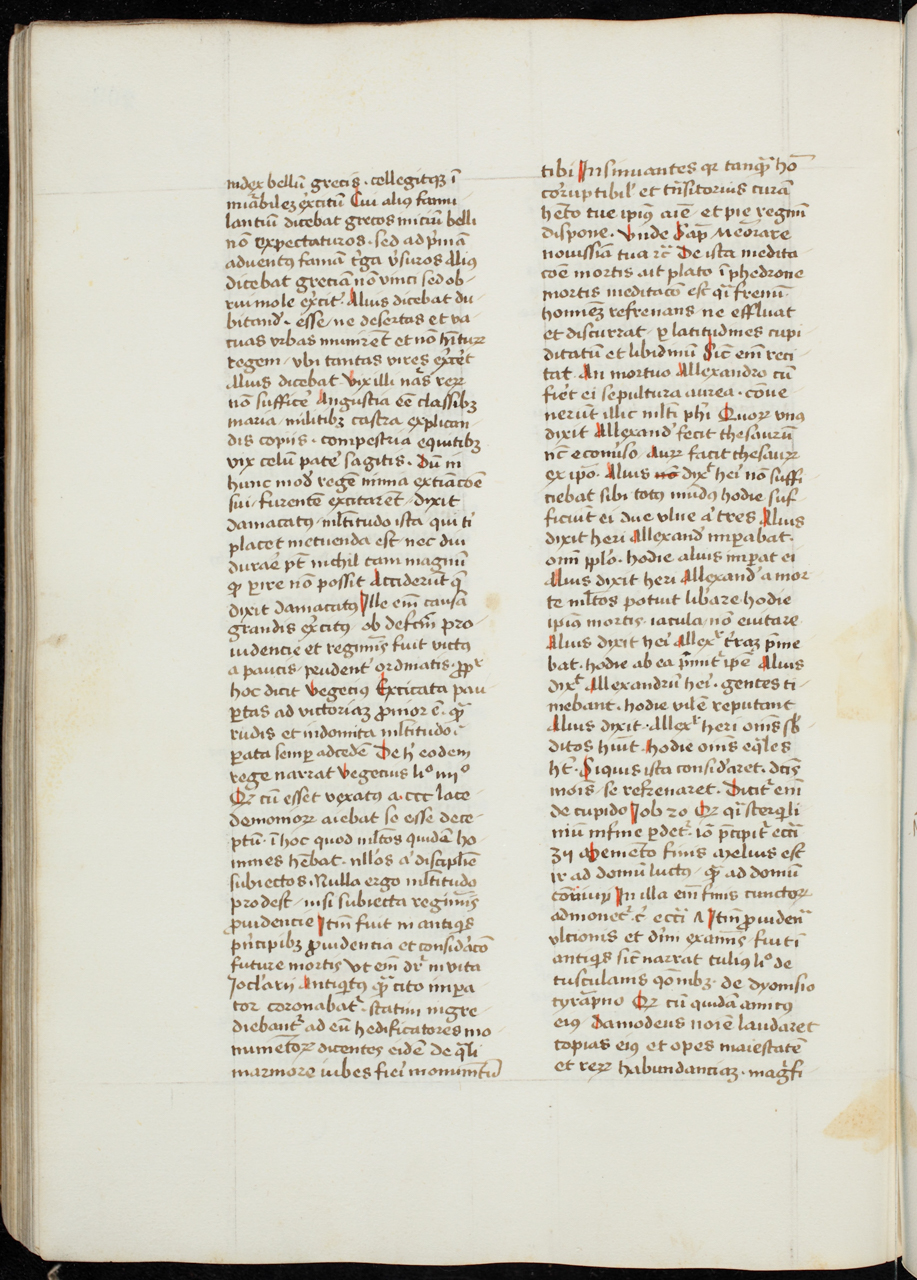 index bellũ grecis · collegitqꝫ ĩ
mirabileꝫ excitũ Cui alius famu
lantiũ dicebat grecos miciũ belli
nõ expectaturos · sed ad pͥmã
aduentꝰ famã tga v̾suros Alius
dicebat greciã nõ vinci sed ob
rui mole ex̾cit̾ · Alius dicebat du
bitand̾ · esse · ne desertas et va
cuas vrbas muniret̃ et nõ hr̃itur
regem · vbi tantas vires ex̾cet
Alius dicebat Vix illi nas rerꝝ
nõ suffice̾ Angustia eẽ classibꝫ
maria · militibꝫ castra explican
dis copiis · compestria equitibꝫ
vix celũ pate̾ sagitis · Dũ in
hunc mod̾ regẽ nimia extiaçõe
sui · furentẽ excitarẽt · dixit
damacatꝰ · mltitudo ista qui tͥ
placet metuenda est · nec diu
durae̾ pt̃ nichil tam magnũ
qͦ ꝑire nõ possit Acciderũt qͣ
dixit damacatꝰ Ille em̃ causã
grandis ex̾citꝰ · ob defcm̃ pro
uidencie et regimĩs fuit victꝰ
a paucis · prudent̾ ordinatis · ꝓpr̾
hoc dicit Vegecius Excitata pau
ꝑtas ad victoriaꝫ ꝓnior ẽ · qͣ
rudis et indomita mltitudo
ꝑata semꝑ ad cedẽ De h̾ eodem
rege narrat Vegecius liͦ iiijͦ
Qꝛ cũ esset vexatꝰ a · ccc lace
demomorꝝ aiebat se esse dece
ptũ · ĩ hoc quod mltos quidẽ ho
mines he̾bat · nllos a̾ disciplie
subiectos · Nulla ergo mltitudo
prodest · nisi subiecta regimis
ꝓuidencie Itm̃ fuit in antiqis
pͥncipibꝫ ꝓuidencia et consid̾acõ
future mortis Vt em̃ dr̃ in vita
Ioclarij Antiqitꝰ qͣ cito impa
tor coronabat̾ · statim ingre
diebant̾ ad eũ hedificatores mo
numẽtorꝝ dicentes eidẽ de qͣli
marmore iubes fieri monumẽtũ
tibi Insinuantes qꝛ tanqͣ hõ
coruptibil̾ et trñsitorius curã
hẽto tue ipius aiẽ · et pie regnũ
dispone · Vnde Sap̃ Meorare
nouissiã tua rc̃ De ista medita
cõe mortis ait plato ĩ phedrone
mortis meditacõ est qͣ frenũ ·
hominẽꝫ refrenans · ne effluat
et discurrat · ꝑ latitudines cupi
ditatũ et libidinũ Sic em̃ reci
tat An mortuo Allexandro cũ
fier̾t ei sepultura aurea · cõue
nerũt illic mlti phͥ Quorꝝ vnus
dixit Allexand̾ fecit thesaurũ
nc̃ ecouiso Aurꝝ facit thesaurꝝ
ex ipo · Alius dix̾ heri nõ suffi
ciebat sibi totus mũdꝰ hodie suf
ficiũt ei due vlue a̾ tres Alius
dixit heri Allexand̾ impabat ·
omi pplo · hodie alius impat ei
Alius dixit heri Allexand̾ a mor
te mltos potuit lib̾are hodie
ipius mortis · iacula · nõ euitare
Alius dixit heri Allex̾ t̾raꝫ pͥme
bat · hodie ab ea pͥmit̾ ipẽ Alius
dix̾ Allexandrũ heri · gentes ti
mebant · hodie vilẽ reputant
Alius dixit · Allex̾ heri omẽs sb̾
ditos hũit · hodie omẽs eqͣles
ht̃ · Siquis ista consid̾aret · dcis
mois̃ · se refrenaret · Dicit̾ em̃
de cupido Iob 20 Qꝛ qͥ stercͥli
niũ in fine ꝑdet̾ · iõ pͥcipit̾ ecc̃i
37 Memẽto finis Melius est
ir ad domũ luctꝰ · qͣ ad domũ
cõuiuij In illa em̃ finis cunctorꝝ
admonet̾ · c̾ ecc̃i Λ Itm̃ ꝓuiden̾
vlcionis et diñi examis · fuit ĩ
antiqis sic̃ narrat tulius liͦ de
tusculanis qõnibꝫ · de dyonisio
tyrapno Qꝛ cũ quidã amicꝰ
eiꝰ Damodeus noiẽ laudaret
copias eiꝰ et opes maiestatẽ
et rerꝝ habundanciaꝫ · magͥfi